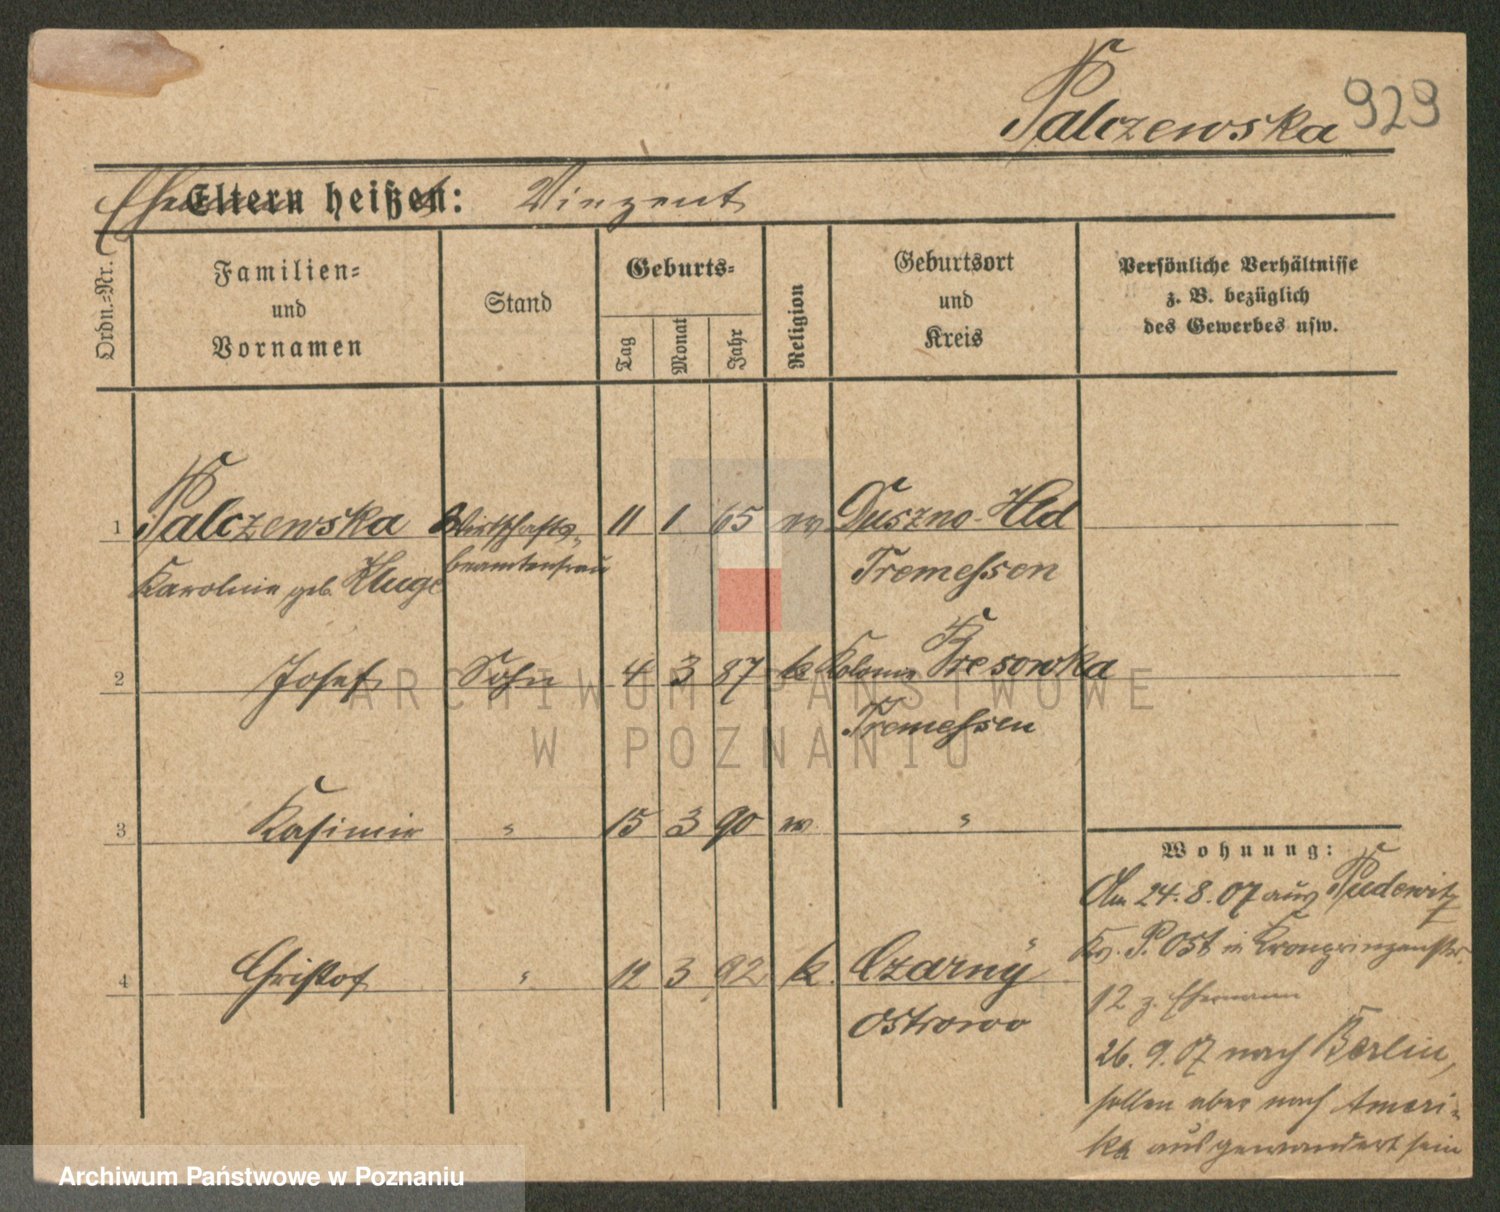 Palczewska 929
Eltern heißen: Vinzent
Ordn.-Nr.
Familien-
und
Vornamen
Stand
Geburts-
Tag
Monat
Jahr
Religion
Geburtsort
und
Kreis
Persönliche Verhältnisse
z. B. bezüglich
des Gewerbes usw.
1 Palczewska Wirtschafts- 11 1 65 ev Duszno-Hld
Karoline geb. Kluge beamtenfrau Tremessen
2 Josef Sohn 4 3 87 k Kolonie Kresowka
Tremessen
3 Kasimir " 15 3 90 ev "
4 Christof " 12 3 92 k. Czarny
Ostrowo
Wohnung:
Am 24.8.07 aus Pudewitz
Kr. P. Ost in Kronprinzenstr.
12 z. Ehemann
26.9.07 nach Berlin,
sollen aber nach Ameri-
ka ausgewandert sein
ARCHIWUM PAŃSTWOWE
W POZNANIU
Archiwum Państwowe w Poznaniu